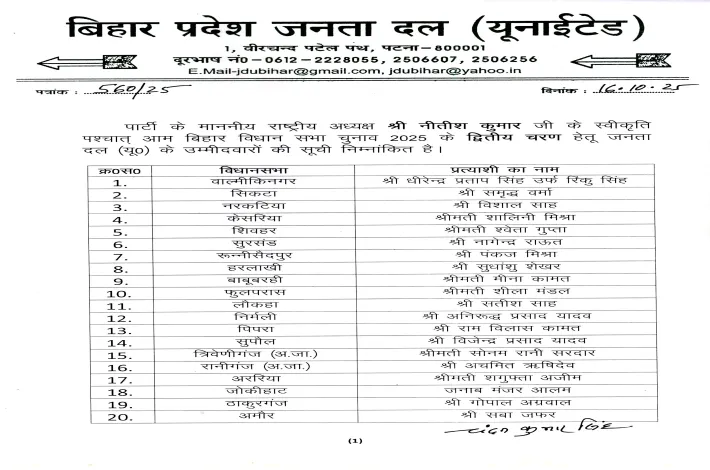 बिहार प्रदेश जनता दल (यूनाईटेड)
1, वीरचन्द पटेल पथ, पटना–800001
दूरभाष नं0–0612–2228055, 2506607, 2506256
E.Mail-jdubihar@gmail.com, jdubihar@yahoo.in
पत्रांक : 560/25 दिनांक : 16.10.25
पार्टी के माननीय राष्ट्रीय अध्यक्ष श्री नीतीश कुमार जी के स्वीकृति
पश्चात् आम बिहार विधान सभा चुनाव 2025 के द्वितीय चरण हेतू जनता
दल (यू0) के उम्मीदवारों की सूची निम्नांकित है।
क्र0स0 विधानसभा प्रत्याशी का नाम
1. वाल्मीकिनगर श्री धीरेन्द्र प्रताप सिंह उर्फ रिंकु सिंह
2. सिकटा श्री समृद्ध वर्मा
3. नरकटिया श्री विशाल साह
4. केसरिया श्रीमती शालिनी मिश्रा
5. शिवहर श्रीमती श्वेता गुप्ता
6. सुरसंड श्री नागेन्द्र राऊत
7. रून्नीसैदपुर श्री पंकज मिश्रा
8. हरलाखी श्री सुधांशु शेखर
9. बाबूबरही श्रीमती मीना कामत
10. फुलपरास श्रीमती शीला मंडल
11. लौकहा श्री सतीश साह
12. निर्मली श्री अनिरूद्ध प्रसाद यादव
13. पिपरा श्री राम विलास कामत
14. सुपौल श्री विजेन्द्र प्रसाद यादव
15. त्रिवेणीगंज (अ.जा.) श्रीमती सोनम रानी सरदार
16. रानीगंज (अ.जा.) श्री अचमित ऋषिदेव
17. अररिया श्रीमती शगुफ्ता अजीम
18. जोकीहाट जनाब मंजर आलम
19. ठाकुरगंज श्री गोपाल अग्रवाल
20. अमौर श्री सबा जफर
चंदन कुमार सिंह
(1)